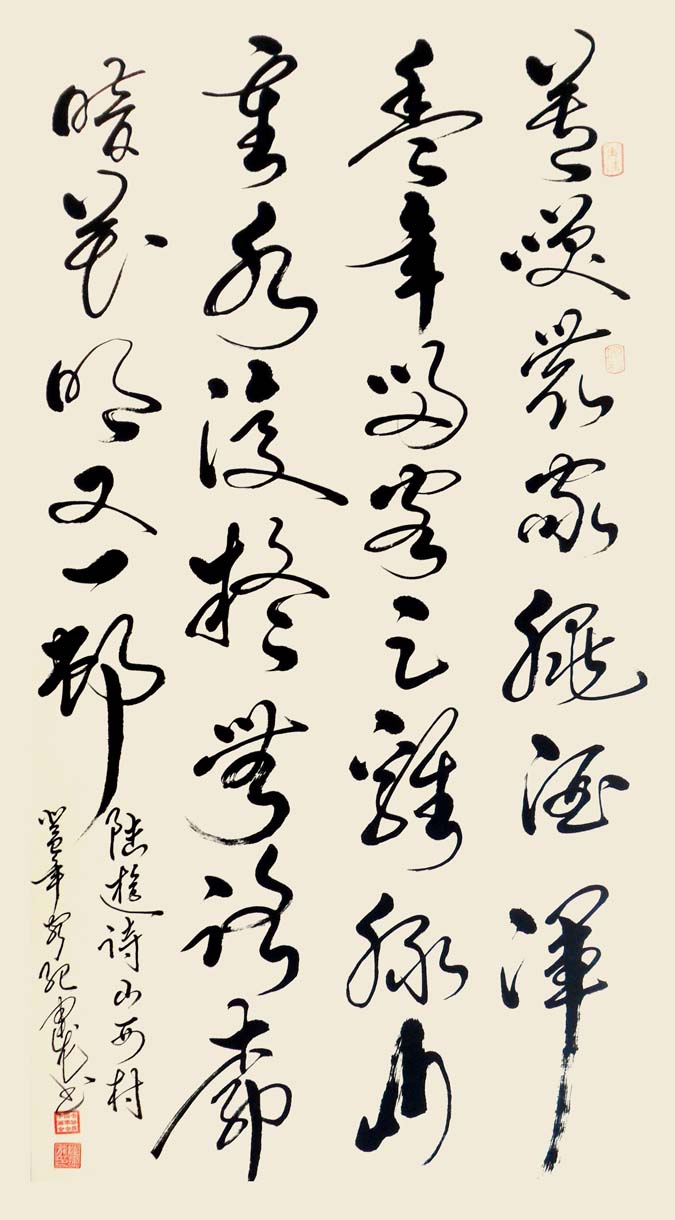 莫笑農家臘酒渾
豐年留客足雞豚山
重水復疑無路柳
暗花明又一邨
陸遊詩山西村